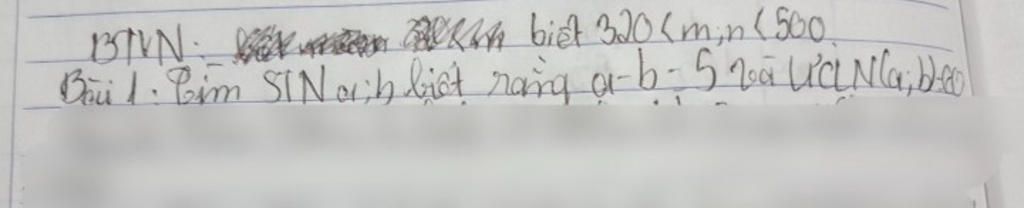 BTVN: biết 320 < m; n < 500
Bài 1: Tìm STN a; b biết rằng a - b = 5 và ƯCLN(a; b)